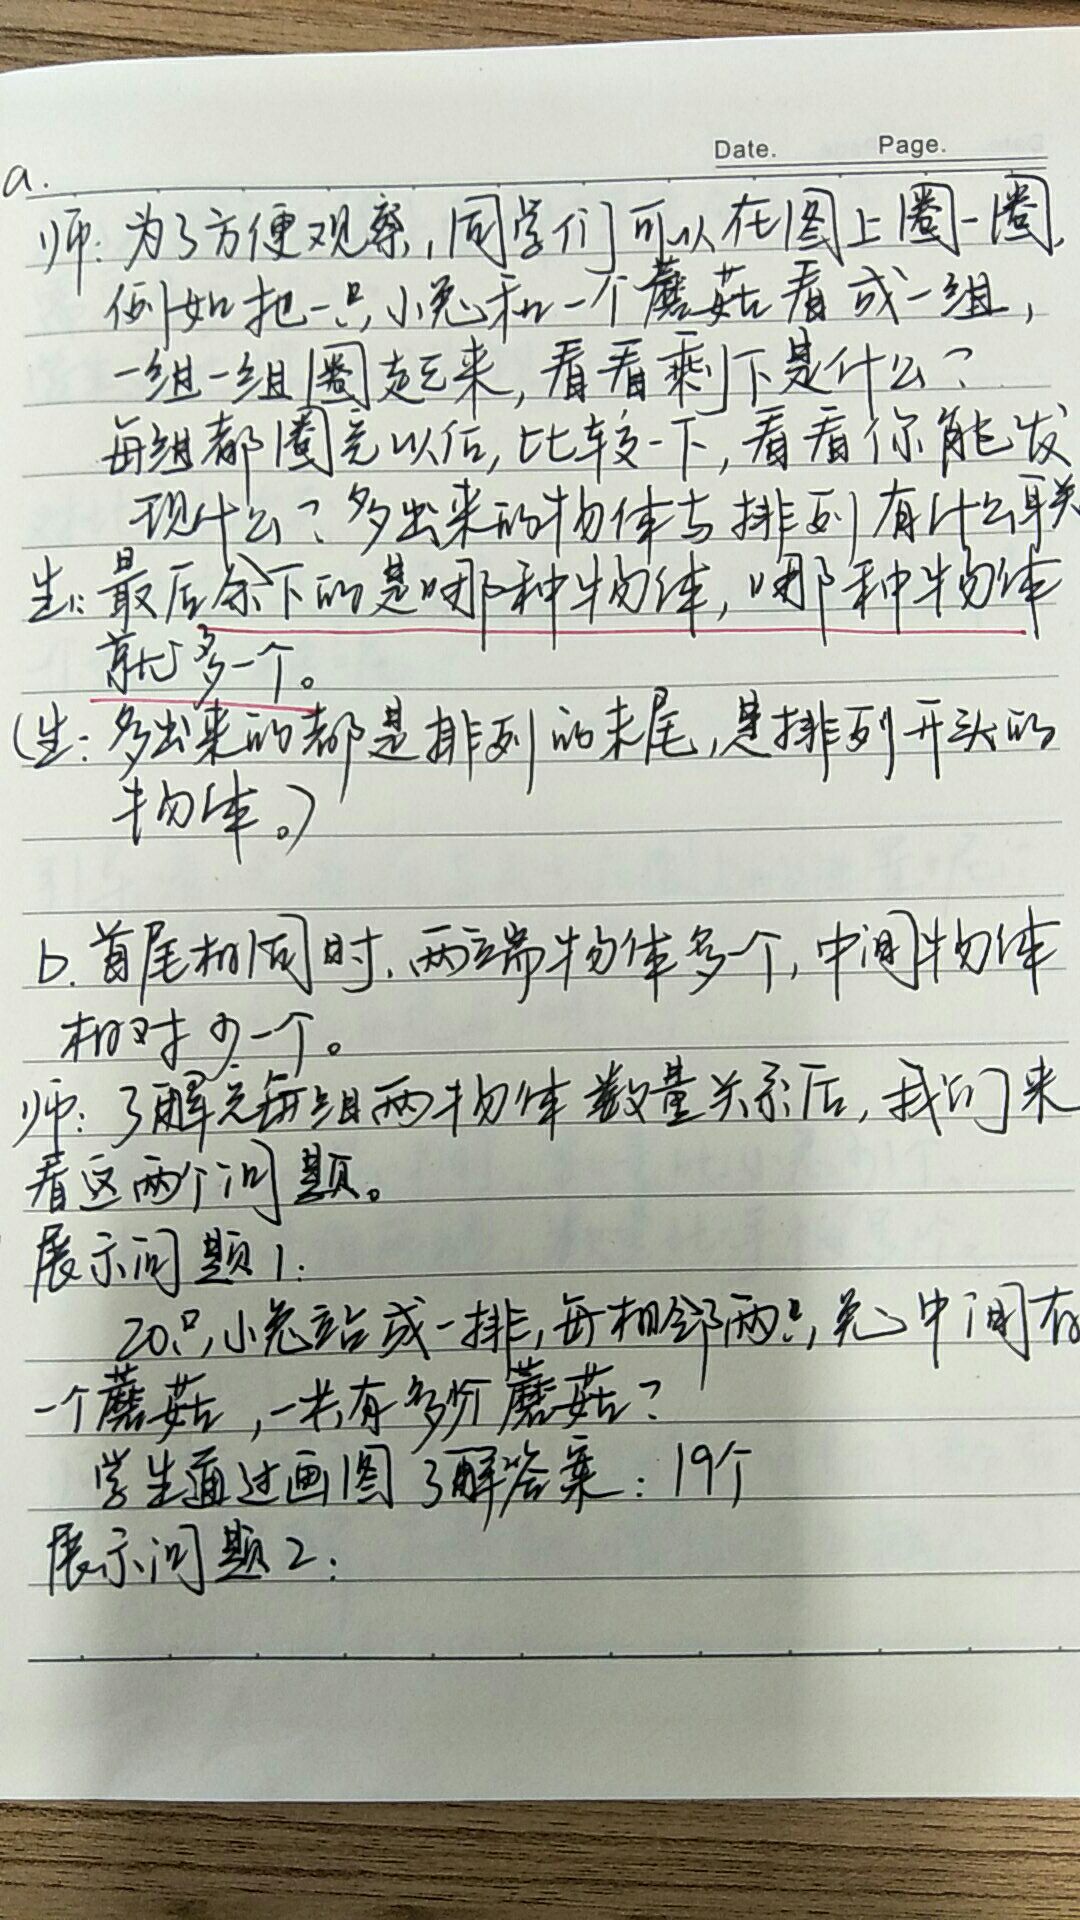 Date. Page.
a.
师:为了方便观察,同学们可以在图上圈一圈,
例如把一只小兔和一个蘑菇看成一组,
一组一组圈起来,看看剩下是什么?
每组都圈完以后,比较一下,看看你能发
现什么?多出来的物体与排列有什么联关
生:最后余下的是哪种物体,哪种物体
就多一个。
(生:多出来的都是排列的末尾,是排列开头的
物体。)
b.首尾相同时,两端物体多一个,中间物体
相对少一个。
师:了解完每组两物体数量关系后,我们来
看这两个问题。
展示问题1:
20只小兔站成一排,每相邻两只兔中间有
一个蘑菇,一共有多少个蘑菇?
学生通过画图了解答案:19个
展示问题2: